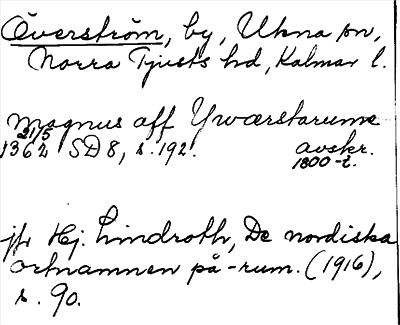 Överström, by, Ukna sn,
Norra Tjusts hd, Kalmar l.
Magnus aff Ywærstarume
21/5
1362 SD 8, s. 192. avskr.
1800-t.
jfr Hj. Lindroth, De nordiska
ortnamnen på -rum. (1916),
s. 90.